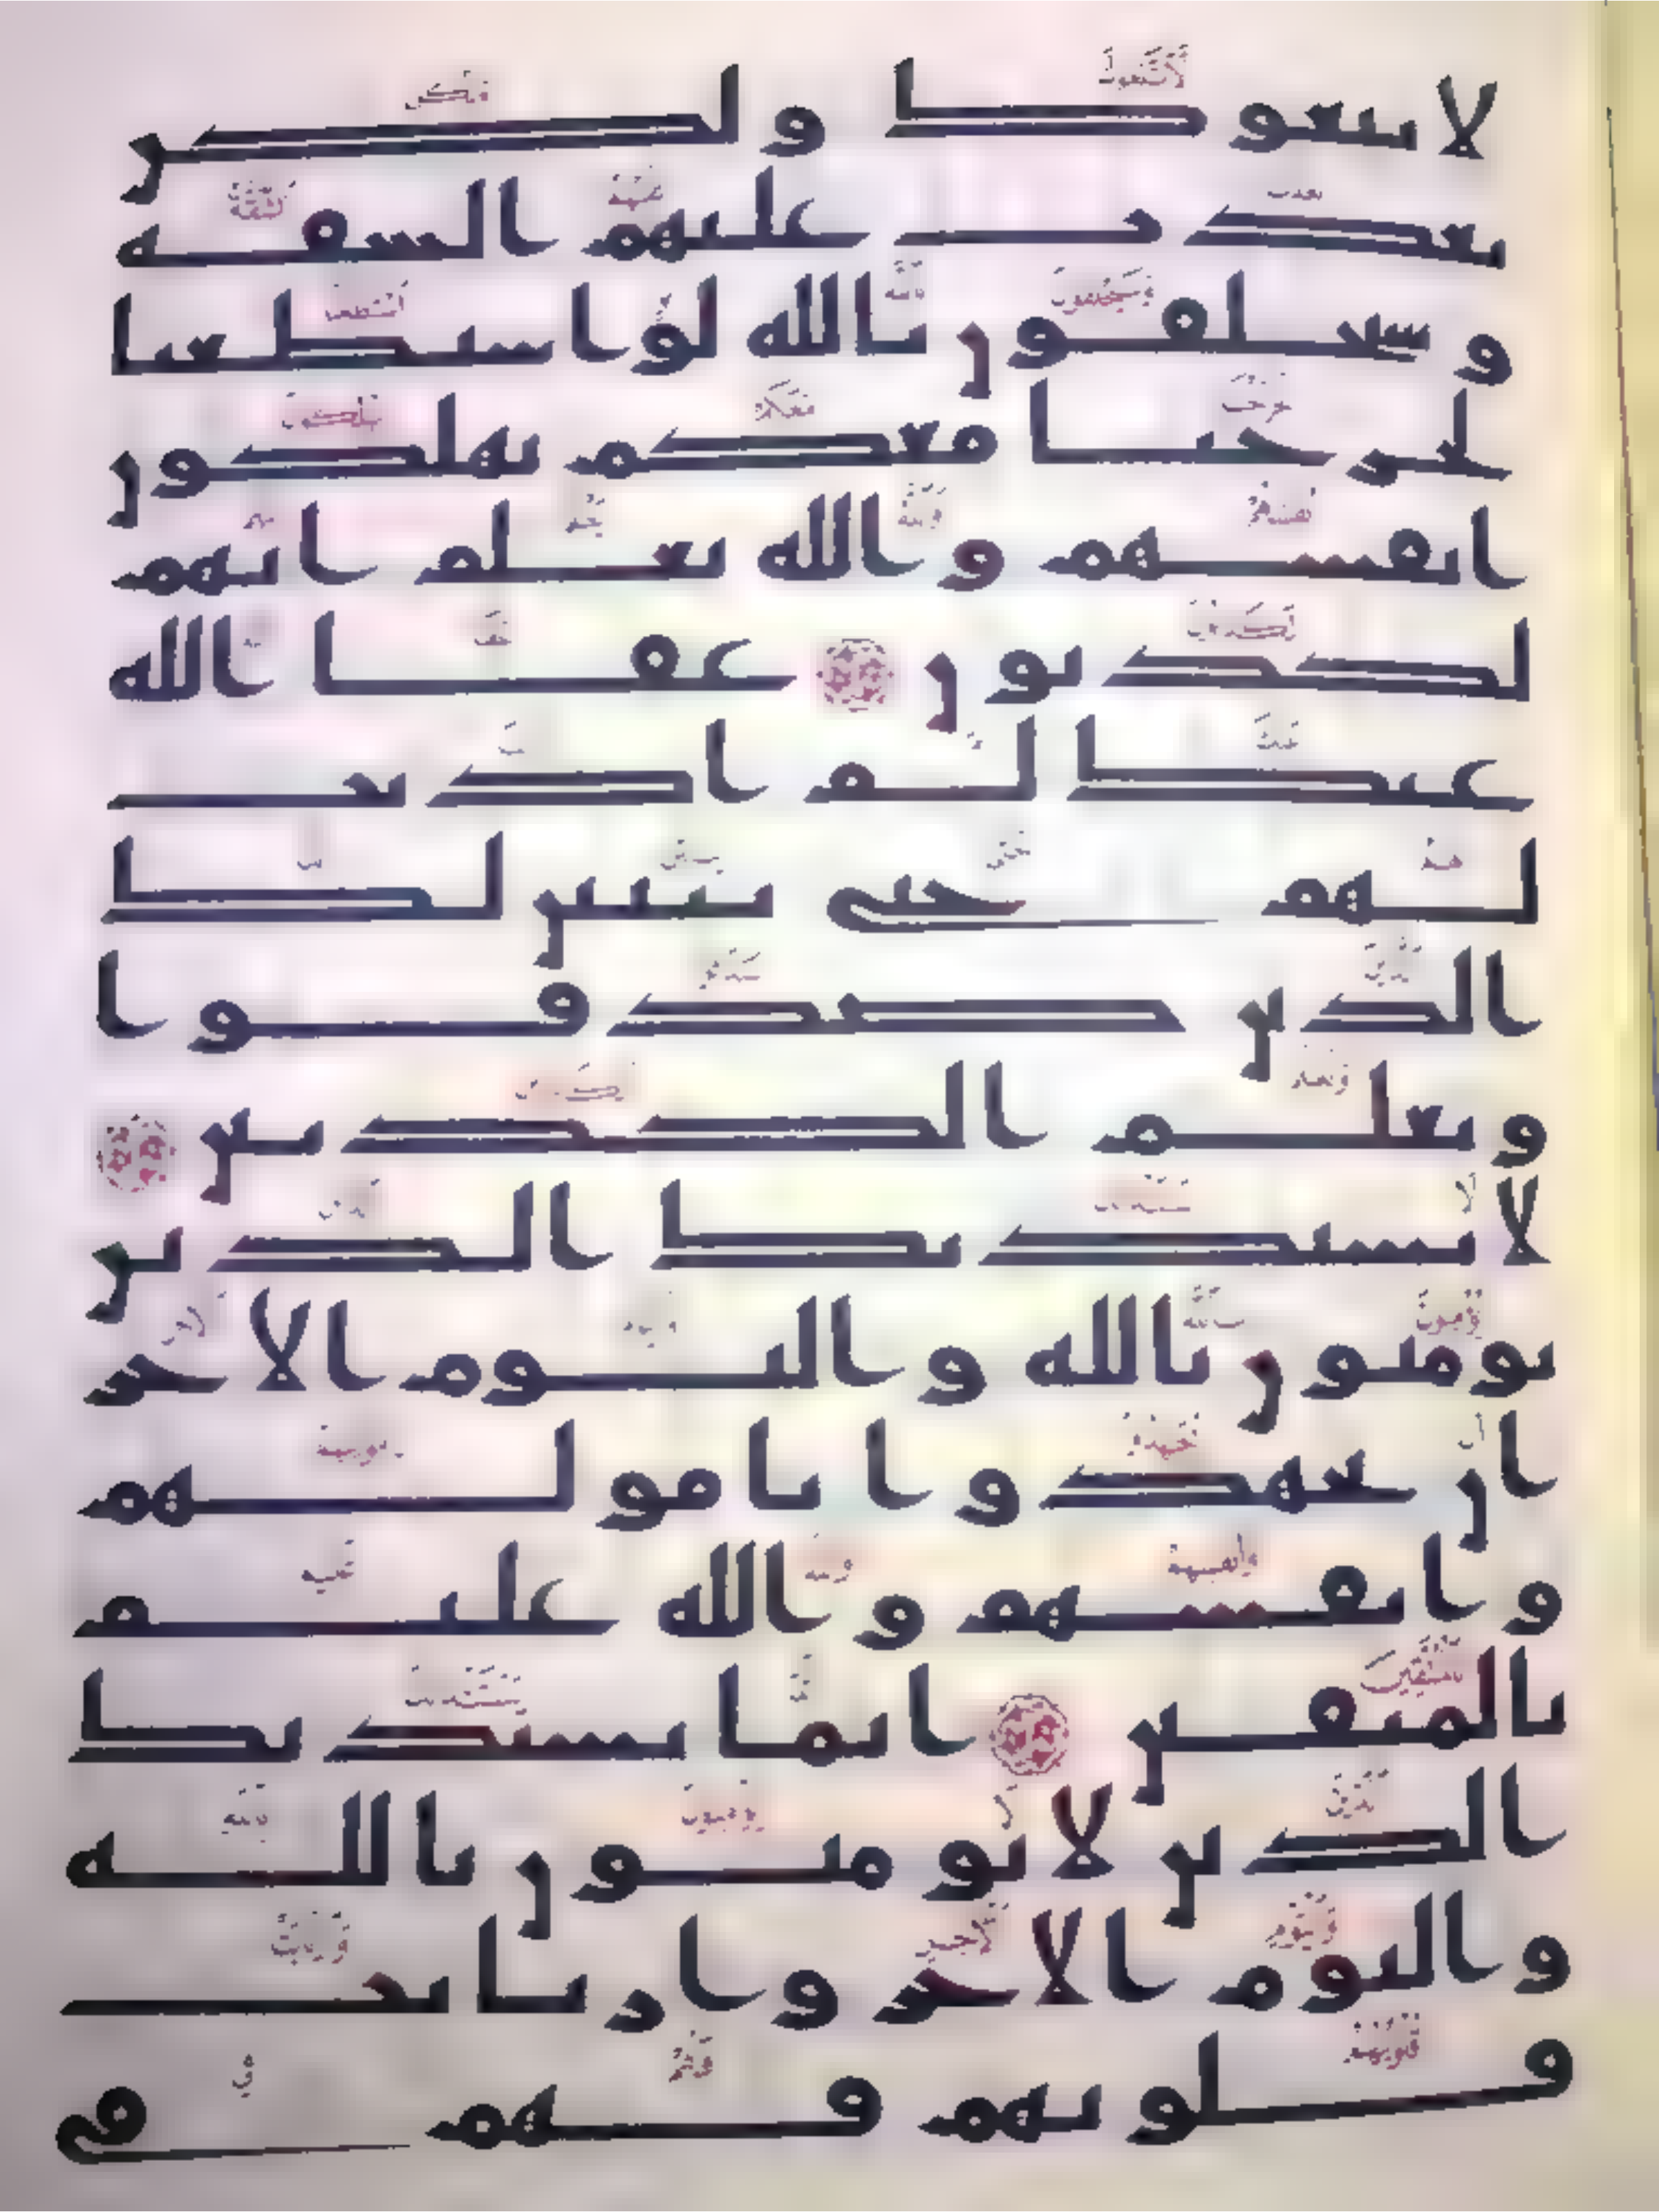 لاتبعوك ولكن
بعدت عليهم الشقة
وسيحلفون بالله لو استطعنا
لخرجنا معكم يهلكون
انفسهم والله يعلم انهم
لكذبون عفا الله
عنك لم اذنت
لهم حتى يتبين لك
الذين صدقوا
وتعلم الكذبين
لا يستذنك الذين
يومنون بالله واليوم الاخر
ان يجهدوا بامولهم
وانفسهم والله عليم
بالمتقين انما يستذنك
الذين لا يومنون بالله
واليوم الاخر وارتابت
قلوبهم فهم في